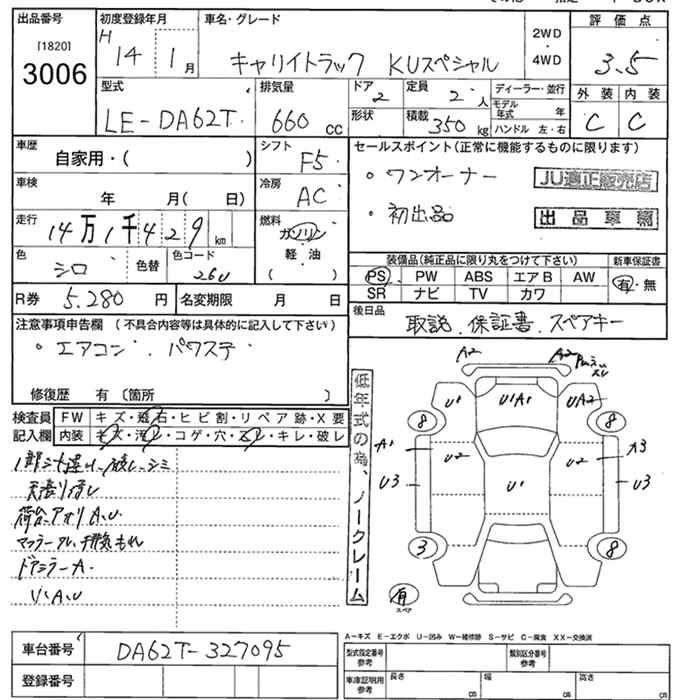 出品番号
[1820]
3006
初度登録年月
H 14年 1月
車名・グレード
キャリイトラック KUスペシャル
2WD
・
4WD
評価点
3.5
外装 内装
C C
型式
LE-DA62T
排気量
660 cc
ドア
2
形状
定員
2人
積載
350 kg
ディーラー・並行
モデル年式 年
ハンドル 左・右
車歴
自家用・( )
シフト
F5
車検
年 月( 日)
冷房
AC
走行
14万1千429km
燃料
ガソリン
軽油
( )
色
シロ
色替
色コード
26U
R券 5,280円
名変期限 月 日
セールスポイント(正常に機能するものに限ります)
・ワンオーナー
JU適正販売店
・初出品
出品車票
装備品(純正品に限り丸をつけて下さい)
新車保証書
PS PW ABS エアB AW
有・無
SR ナビ TV カワ
後日品
取説、保証書、スペアキー
注意事項申告欄 (不具合内容等は具体的に記入して下さい)
・エアコン、パワステ
修復歴 有〔箇所 〕
検査員
記入欄
FW キズ・飛石・ヒビ割・リペア跡・X要
内装 キズ・汚レ・コゲ・穴・スレ・キレ・破レ
荷台、アオリA.U
マフラー
ドアミラーA.
低年式の為、ノークレーム
A2 A2
U1 U1A1 UA2
8 8
A1 U2 U2 A3
U3 U1 U3
3 8
有
スペア
A-キズ E-エクボ U-凹み W-補修跡 S-サビ C-腐食 XX-交換済
車台番号 DA62T-327095
登録番号
型式指定番号
参考
類別区分番号
参考
車庫証明用
参考
長さ cm
幅 cm
高さ cm